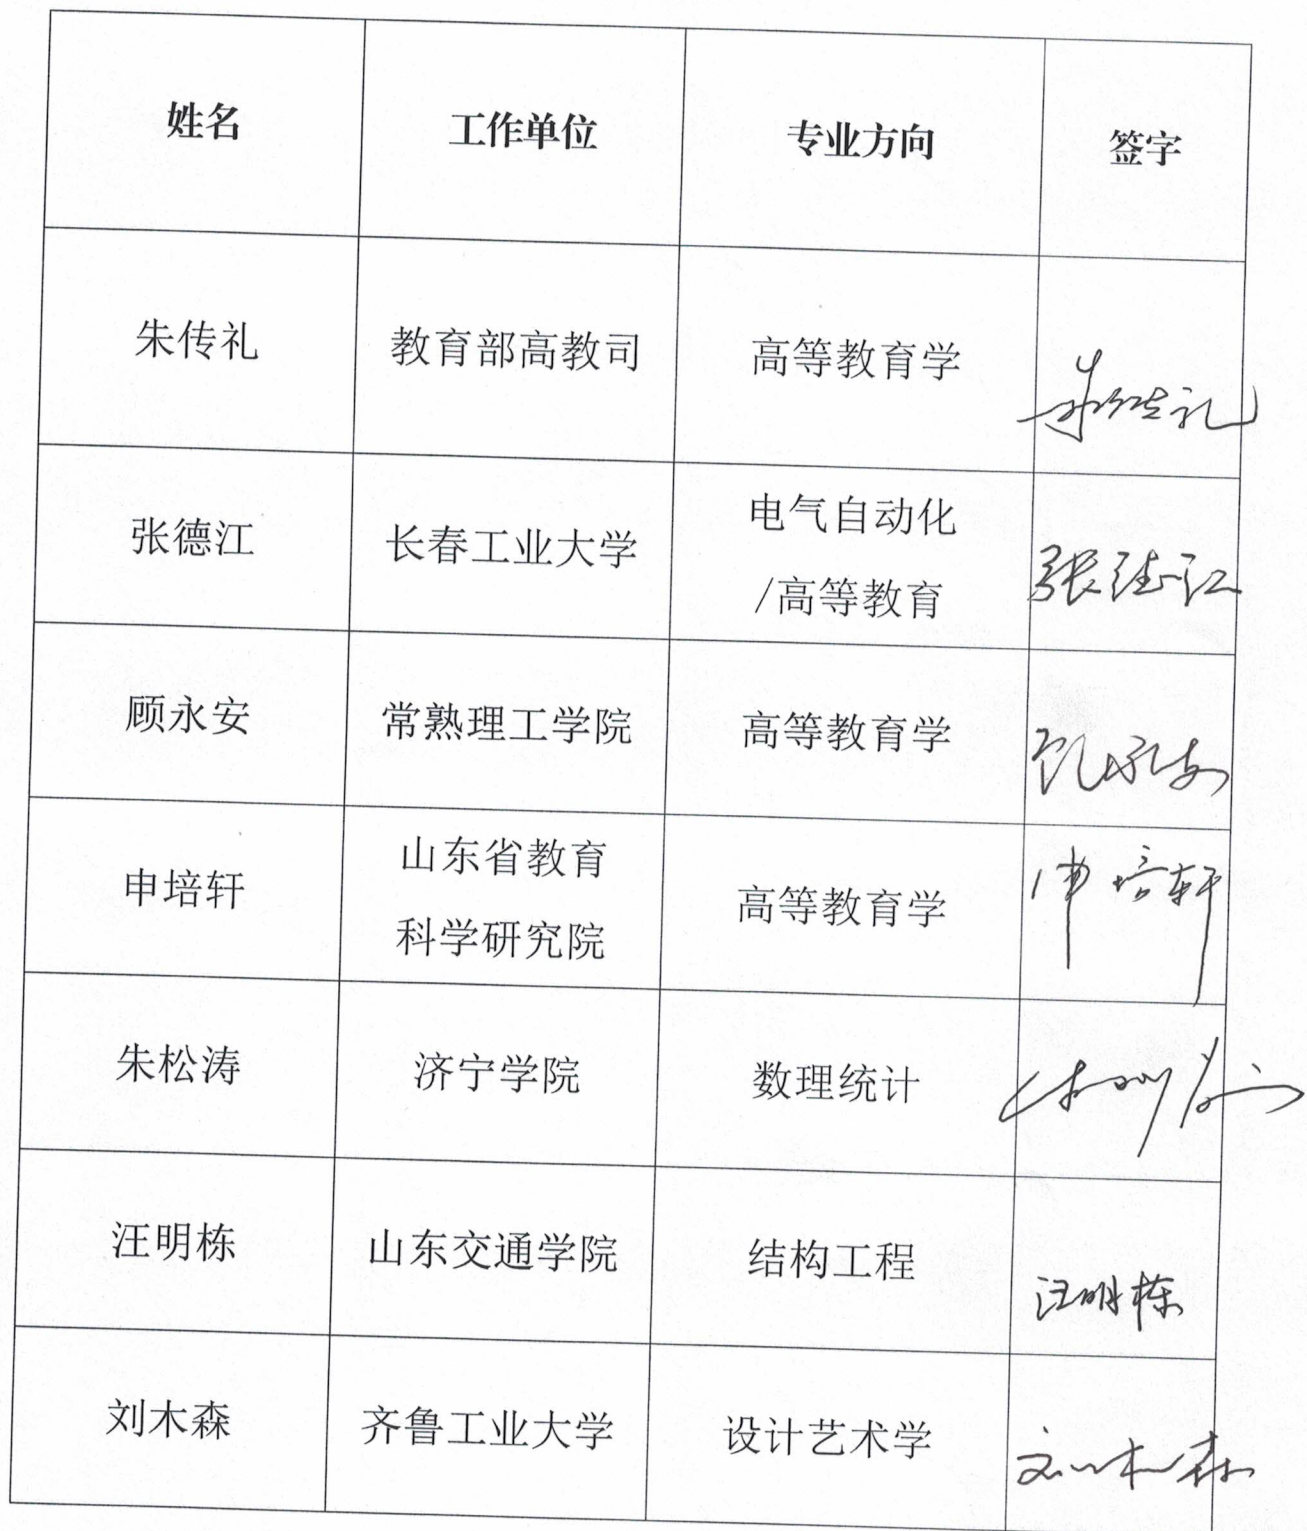 姓名 工作单位 专业方向 签字
朱传礼 教育部高教司 高等教育学 朱传礼
张德江 长春工业大学 电气自动化
/高等教育 张德江
顾永安 常熟理工学院 高等教育学 顾永安
申培轩 山东省教育
科学研究院 高等教育学 申培轩
朱松涛 济宁学院 数理统计 朱松涛
汪明栋 山东交通学院 结构工程 汪明栋
刘木森 齐鲁工业大学 设计艺术学 刘木森